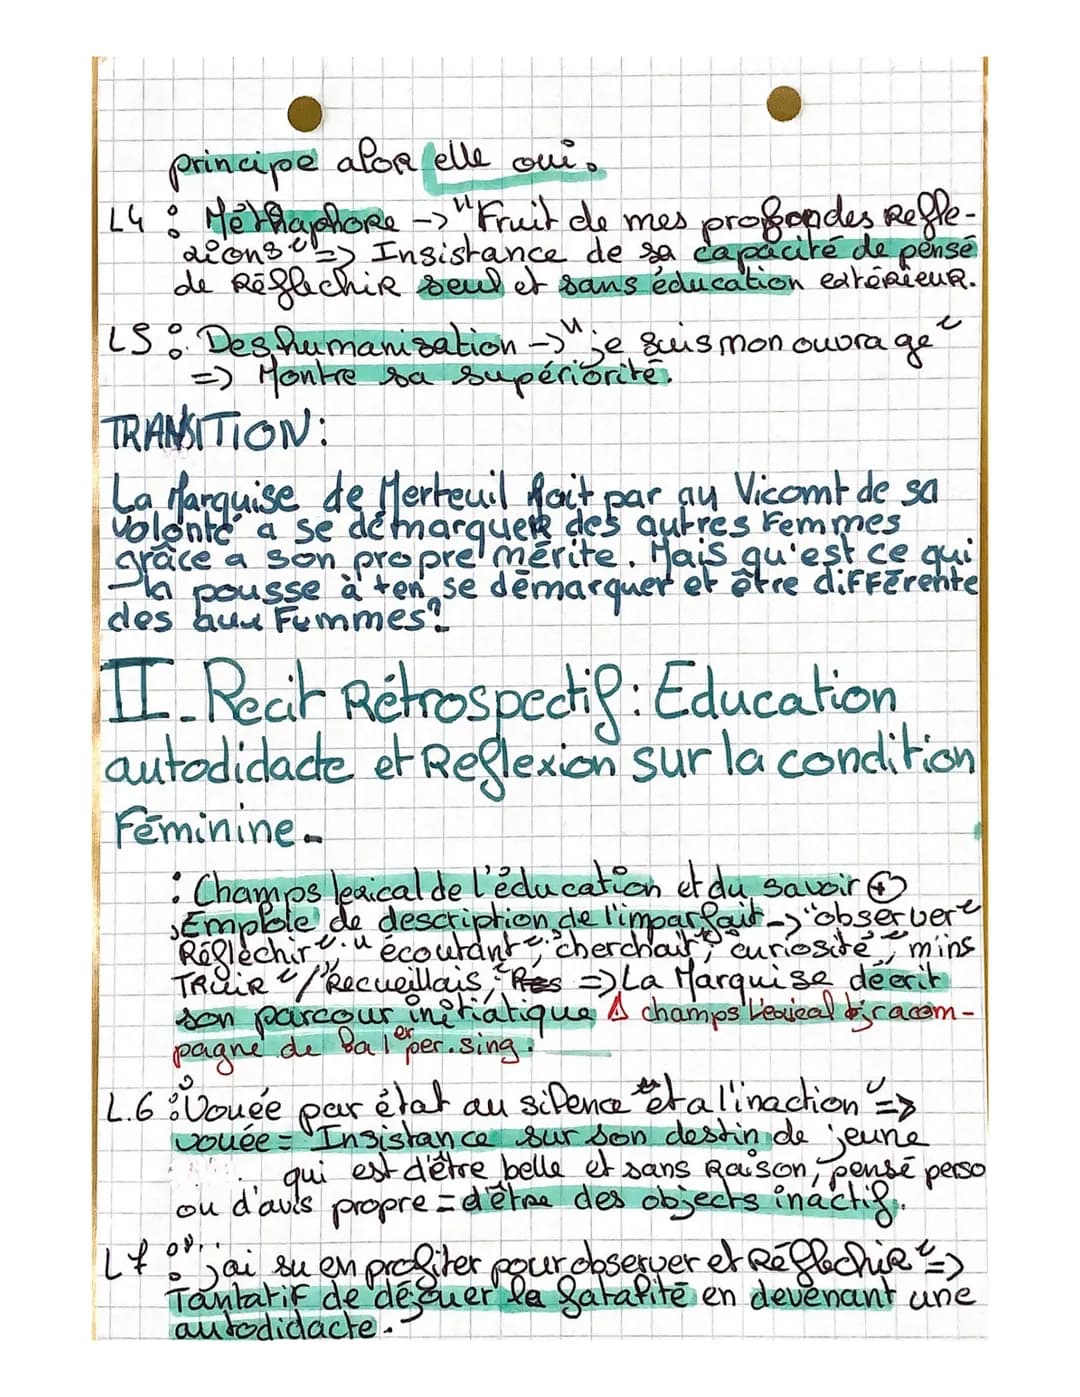 principe alor elle oui.
L4 : Méthaphore -> "Fruit de mes profondes Refle-
xions" => Insistance de sa capacité de pensé
de Réflechir seul et sans éducation extérieur.
L5 : Deshumanisation -> "je suis mon ouvrage"
=> Montre sa supériorité.
TRANSITION :
La Marquise de Merteuil fait par au Vicomt de sa
volonté a se démarquer des autres Femmes
grâce a son propre mérite. Mais qu'est ce qui
la pousse à ten se démarquer et être différente
des aux Femmes?
II - Recit Rétrospectif : Education
autodidacte et Reflexion sur la condition
Féminine.
: Champs lexical de l'éducation et du savoir +
Emploie de description de l'imparfait -> "observer"
Réflechir", "écoutant", "cherchait", "curiosité", "mins
TRuiR" / "Recueillais, => La Marquise décrit
son parcour initiatique champs lexical tjr acom-
pagné de la 1er per. sing.
L.6 : Vouée par état au silence et a l'inaction" =>
vouée = Insistance sur son destin de jeune
qui est d'être belle et sans Raison, pensé perso
ou d'avis propre = d'être des objects inactif.
L7 : "j'ai su en profiter pour observer et Réflechir" =>
Tantatif de déjouer la fatalité en devenant une
autodidacte.